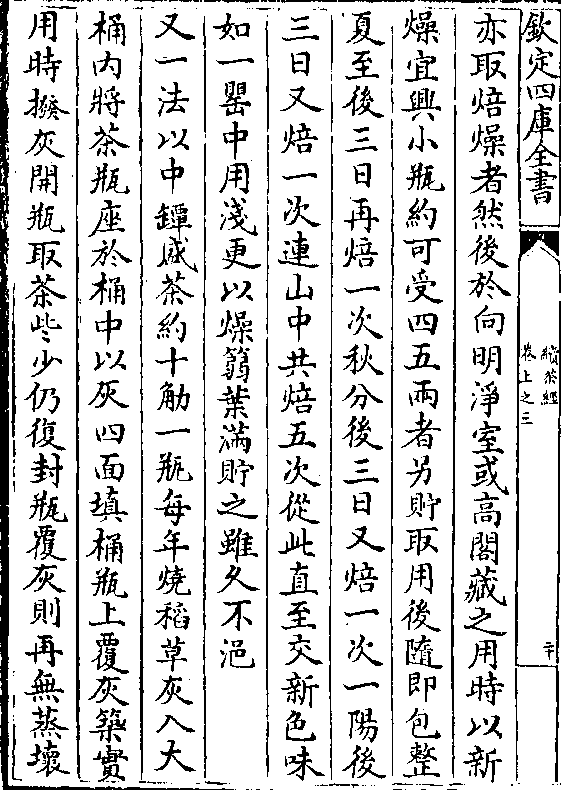 欽定四庫全書
續茶經
卷上之三
二十
亦取焙燥者然後於向明淨室或高閣藏之用時以新
燥宜興小瓶約可受四五兩者另貯取用後隨即包整
夏至後三日再焙一次秋分後三日又焙一次一陽後
三日又焙一次連山中共焙五次從此直至交新色味
如一罌中用淺更以燥篛葉滿貯之雖久不浥
又一法以中罈盛茶約十觔一瓶每年燒稻草灰入大
桶内將茶瓶座於桶中以灰四面填桶瓶上覆灰築實
用時撥灰開瓶取茶些少仍復封瓶覆灰則再無蒸壞